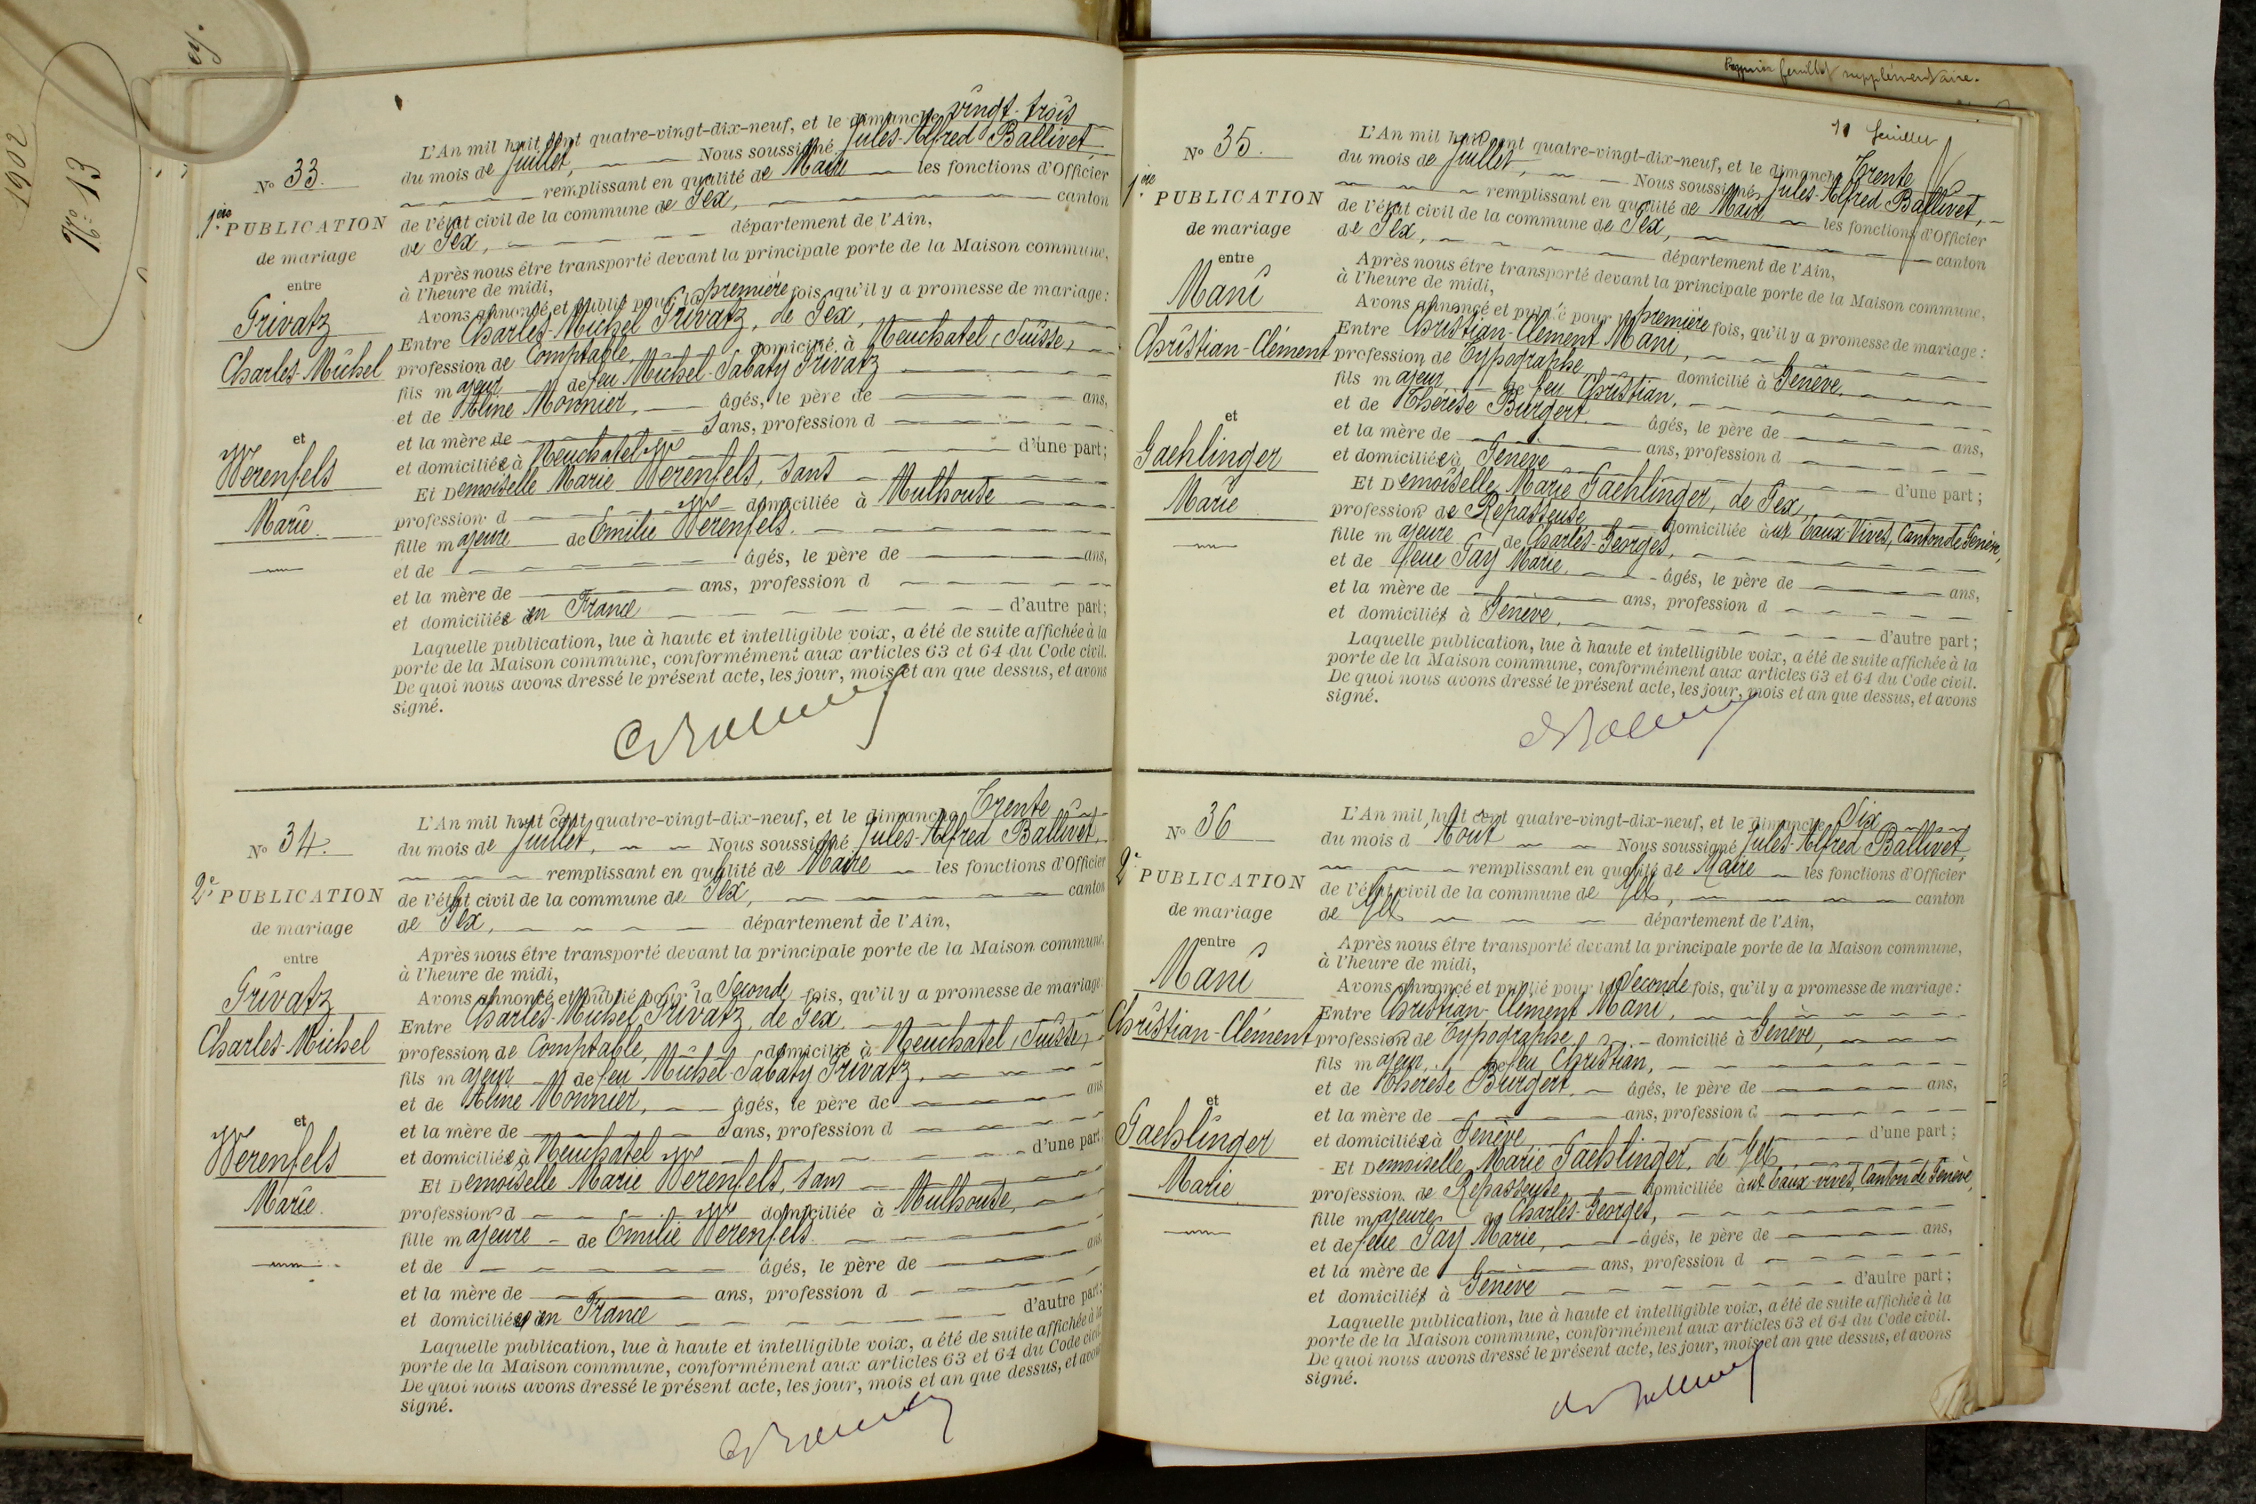 1902
N° 13
ey.
N° 33.
1ère PUBLICATION
de mariage
entre
Grivatz
Charles-Michel
et
Werenfels
Marie.
L'An mil huit cent quatre-vingt-dix-neuf, et le dimanche vingt-trois
du mois de Juillet, Nous soussigné Jules-Alfred Ballivet
remplissant en qualité de Maire les fonctions d'Officier
de l'état civil de la commune de Gex, canton
de Gex, département de l'Ain,
Après nous être transporté devant la principale porte de la Maison commune,
à l'heure de midi,
Avons annoncé et publié pour la première fois, qu'il y a promesse de mariage :
Entre Charles-Michel Grivatz, de Gex,
profession de Comptable, domicilié à Neuchatel (Suisse)
fils majeur de feu Michel-Sabaty Grivatz
et de Aline Monnier, âgés, le père de ans,
et la mère de ans, profession d
et domiciliée à Neuchatel d'une part;
Et Demoiselle Marie Werenfels, sans
profession d domiciliée à Mulhouse
fille majeure de Emilie Werenfels.
et de âgés, le père de ans,
et la mère de ans, profession d
et domiciliée en France d'autre part;
Laquelle publication, lue à haute et intelligible voix, a été de suite affichée à la
porte de la Maison commune, conformément aux articles 63 et 64 du Code civil.
De quoi nous avons dressé le présent acte, les jour, mois et an que dessus, et avons
signé.
N° 34.
2e PUBLICATION
de mariage
entre
Grivatz
Charles-Michel
et
Werenfels
Marie.
L'An mil huit cent quatre-vingt-dix-neuf, et le dimanche Trente
du mois de Juillet, Nous soussigné Jules-Alfred Ballivet,
remplissant en qualité de Maire les fonctions d'Officier
de l'état civil de la commune de Gex, canton
de Gex, département de l'Ain,
Après nous être transporté devant la principale porte de la Maison commune,
à l'heure de midi,
Avons annoncé et publié pour la Seconde fois, qu'il y a promesse de mariage :
Entre Charles-Michel Grivatz, de Gex.
profession de Comptable, domicilié à Neuchatel (Suisse)
fils majeur de feu Michel-Sabaty Grivatz,
et de Aline Monnier, âgés, le père de ans
et la mère de ans, profession d
et domiciliée à Neuchatel d'une part
Et Demoiselle Marie Werenfels, sans
profession d domiciliée à Mulhouse,
fille majeure de Emilie Werenfels
et de âgés, le père de ans
et la mère de ans, profession d
et domiciliée en France d'autre part;
Laquelle publication, lue à haute et intelligible voix, a été de suite affichée à la
porte de la Maison commune, conformément aux articles 63 et 64 du Code civil.
De quoi nous avons dressé le présent acte, les jour, mois et an que dessus, et avons
signé.
feuillet supplémentaire.
11 feuillet
N° 35.
1ère PUBLICATION
de mariage
entre
Mani
Christian-Clément
et
Gaehlinger
Marie
L'An mil huit cent quatre-vingt-dix-neuf, et le dimanche Trente
du mois de Juillet, Nous soussigné Jules-Alfred Ballivet,
remplissant en qualité de Maire les fonctions d'Officier
de l'état civil de la commune de Gex, canton
de Gex, département de l'Ain,
Après nous être transporté devant la principale porte de la Maison commune,
à l'heure de midi,
Avons annoncé et publié pour la première fois, qu'il y a promesse de mariage :
Entre Christian-Clément Mani,
profession de Typographe, domicilié à Genève,
fils majeur, de feu Christian,
et de Thérèse Burgert. âgés, le père de ans,
et la mère de ans, profession d
et domiciliée à Genève d'une part ;
Et Demoiselle Marie Gaehlinger, de Gex,
profession de Repasseuse domiciliée aux Eaux-Vives, Canton de Genève,
fille majeure de Charles-Georges,
et de feue Gay Marie âgés, le père de ans,
et la mère de ans, profession d
et domiciliés à Genève. d'autre part ;
Laquelle publication, lue à haute et intelligible voix, a été de suite affichée à la
porte de la Maison commune, conformément aux articles 63 et 64 du Code civil.
De quoi nous avons dressé le présent acte, les jour, mois et an que dessus, et avons
signé.
N° 36
2e PUBLICATION
de mariage
entre
Mani
Christian-Clément
et
Gaehlinger
Marie
L'An mil huit cent quatre-vingt-dix-neuf, et le dimanche Six
du mois d'Août Nous soussigné Jules-Alfred Ballivet,
remplissant en qualité de Maire les fonctions d'Officier
de l'état civil de la commune de Gex, canton
de Gex département de l'Ain,
Après nous être transporté devant la principale porte de la Maison commune,
à l'heure de midi,
Avons annoncé et publié pour la Seconde fois, qu'il y a promesse de mariage :
Entre Christian-Clément Mani,
profession de Typographe, domicilié à Genève,
fils majeur, de feu Christian,
et de Thérèse Burgert. âgés, le père de ans,
et la mère de ans, profession d
et domiciliée à Genève, d'une part ;
Et Demoiselle Marie Gaehlinger, de Gex,
profession de Repasseuse domiciliée aux Eaux-vives, Canton de Genève,
fille majeure de Charles-Georges,
et de feue Gay Marie, âgés, le père de ans,
et la mère de ans, profession d
et domiciliés à Genève d'autre part ;
Laquelle publication, lue à haute et intelligible voix, a été de suite affichée à la
porte de la Maison commune, conformément aux articles 63 et 64 du Code civil.
De quoi nous avons dressé le présent acte, les jour, mois et an que dessus, et avons
signé.